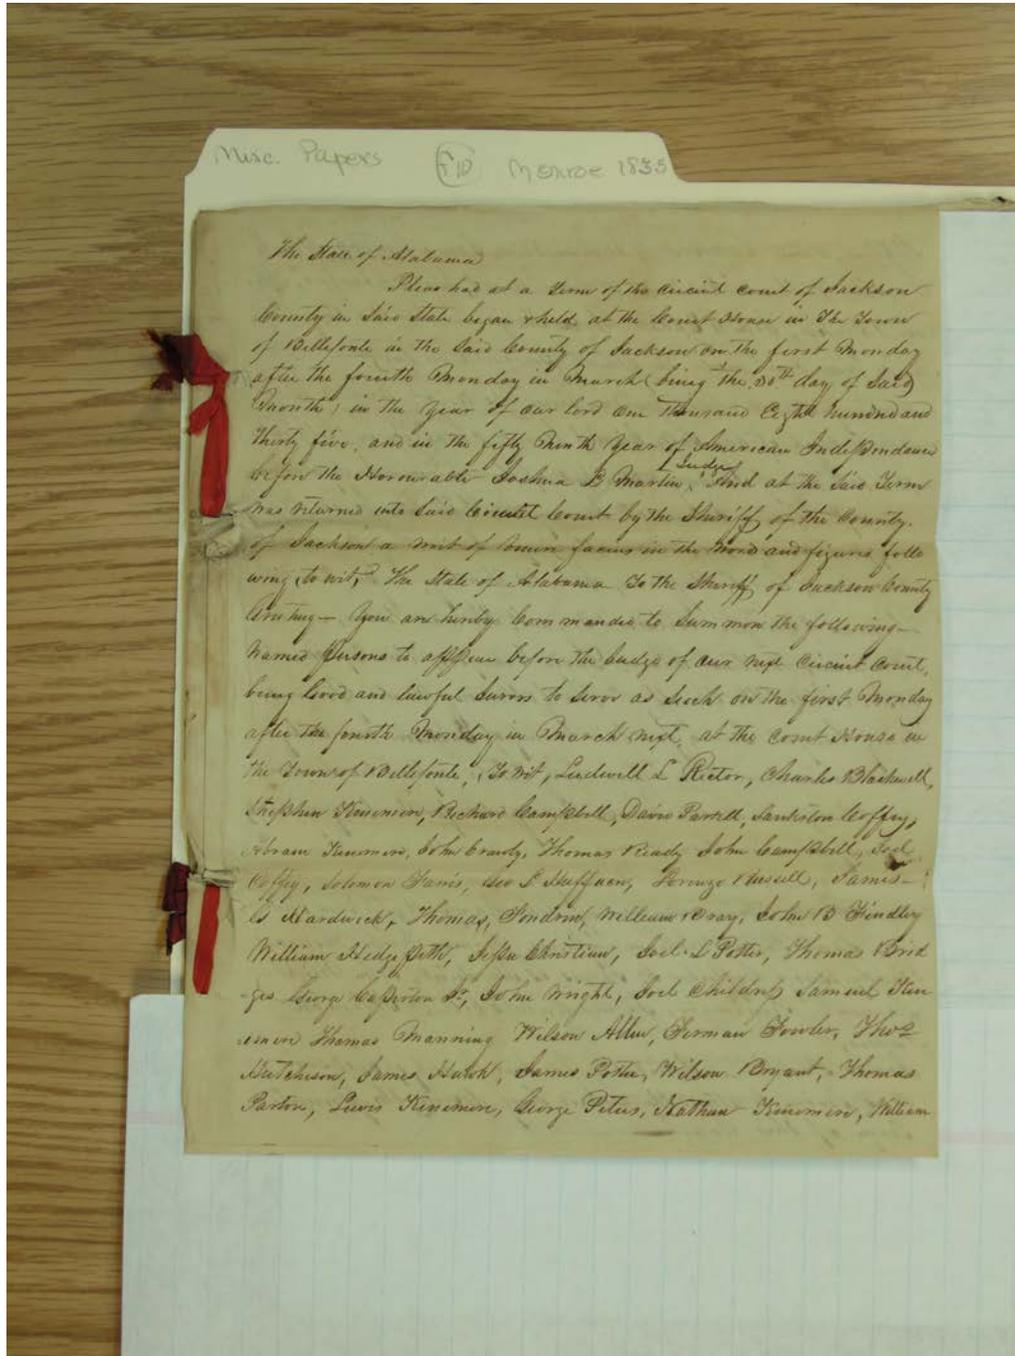 Misc. Papers F10 Monroe 1835
The State of Alabama
Pleas had at a Term of the Circuit Court of Jackson
County in Said State began & held at the Court House in The Town
of Bellefonte in the Said County of Jackson on the first Monday
after the fourth Monday in March (being the 30th day of Said
Month) in the Year of our lord one Thousand Eight hundred and
thirty five, and in the fifty Ninth Year of American Independance
before the Honourable Joshua L Martin, Judge And at the Said Term
was returned into Said Circuit Court by the Sheriff of the County.
of Jackson a writ of facias in the word and figures follo
wing, to wit, The State of Alabama To the Sheriff of Jackson County
Greeting— You are hereby Commanded to Summon the following—
Named persons to appear before the Judge of our next Circuit Court,
being Good and lawful Jurors to serve as such on the first Monday
after the fourth Monday in March next, at the Court House in
the Town of Bellefonte, To wit, Ludwell L Rector, Charles Blackwell,
Stephen Kinemore, Richard Campbell, David Parsell, Coffey,
Abram Kinemore, John Thomas Ready John Campbell, Joel
Coffey, Solomon Geo L Huffacre, Lorenzo Russell, James—
Hardwick, Thomas, William Bray, John B Findley
William Hedgepeth, Jesse Christian, Joel L Potter, Thomas Brid
ges George Caperton Sr, John Wright, Joel Childress Samuel Kin
emore Thomas Manning Wilson Allen, Fowler, Thos
Hutchison, James James Porter, Wilson Bryant, Thomas
Parton, Lewis Kinemore, George Peters, Nathan Kinemore, William